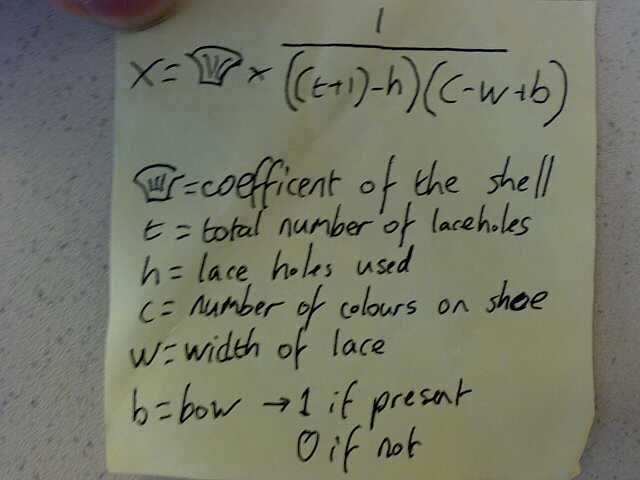 1
x = × ((t+1)-h)(c-w+b)
=coefficent of the shell
t = total number of laceholes
h = lace holes used
c = number of colours on shoe
w = width of lace
b = bow → 1 if present
0 if not